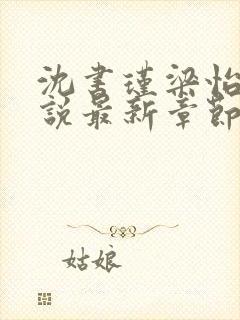 沈書瑾梁怡
說最新章節
姑娘